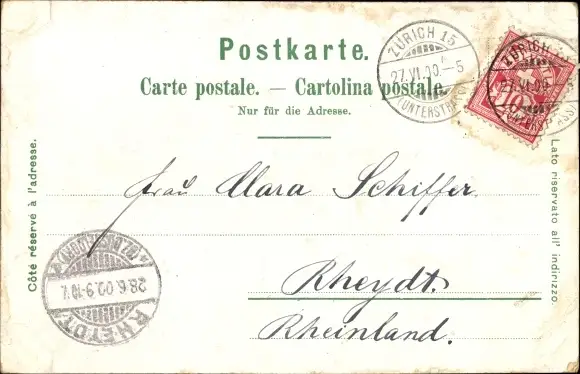 Postkarte.
Carte postale. — Cartolina postale.
Nur für die Adresse.
ZÜRICH 15
27.VI.00.–5
(UNTERSTR
ZÜRICH
27.VI.00
Côté réservé à l'adresse.
Lato riservato all' indirizzo.
Frau Clara Schiffer
Rheydt.
Rheinland.
28.6.00.9-10V.
RHEYDT